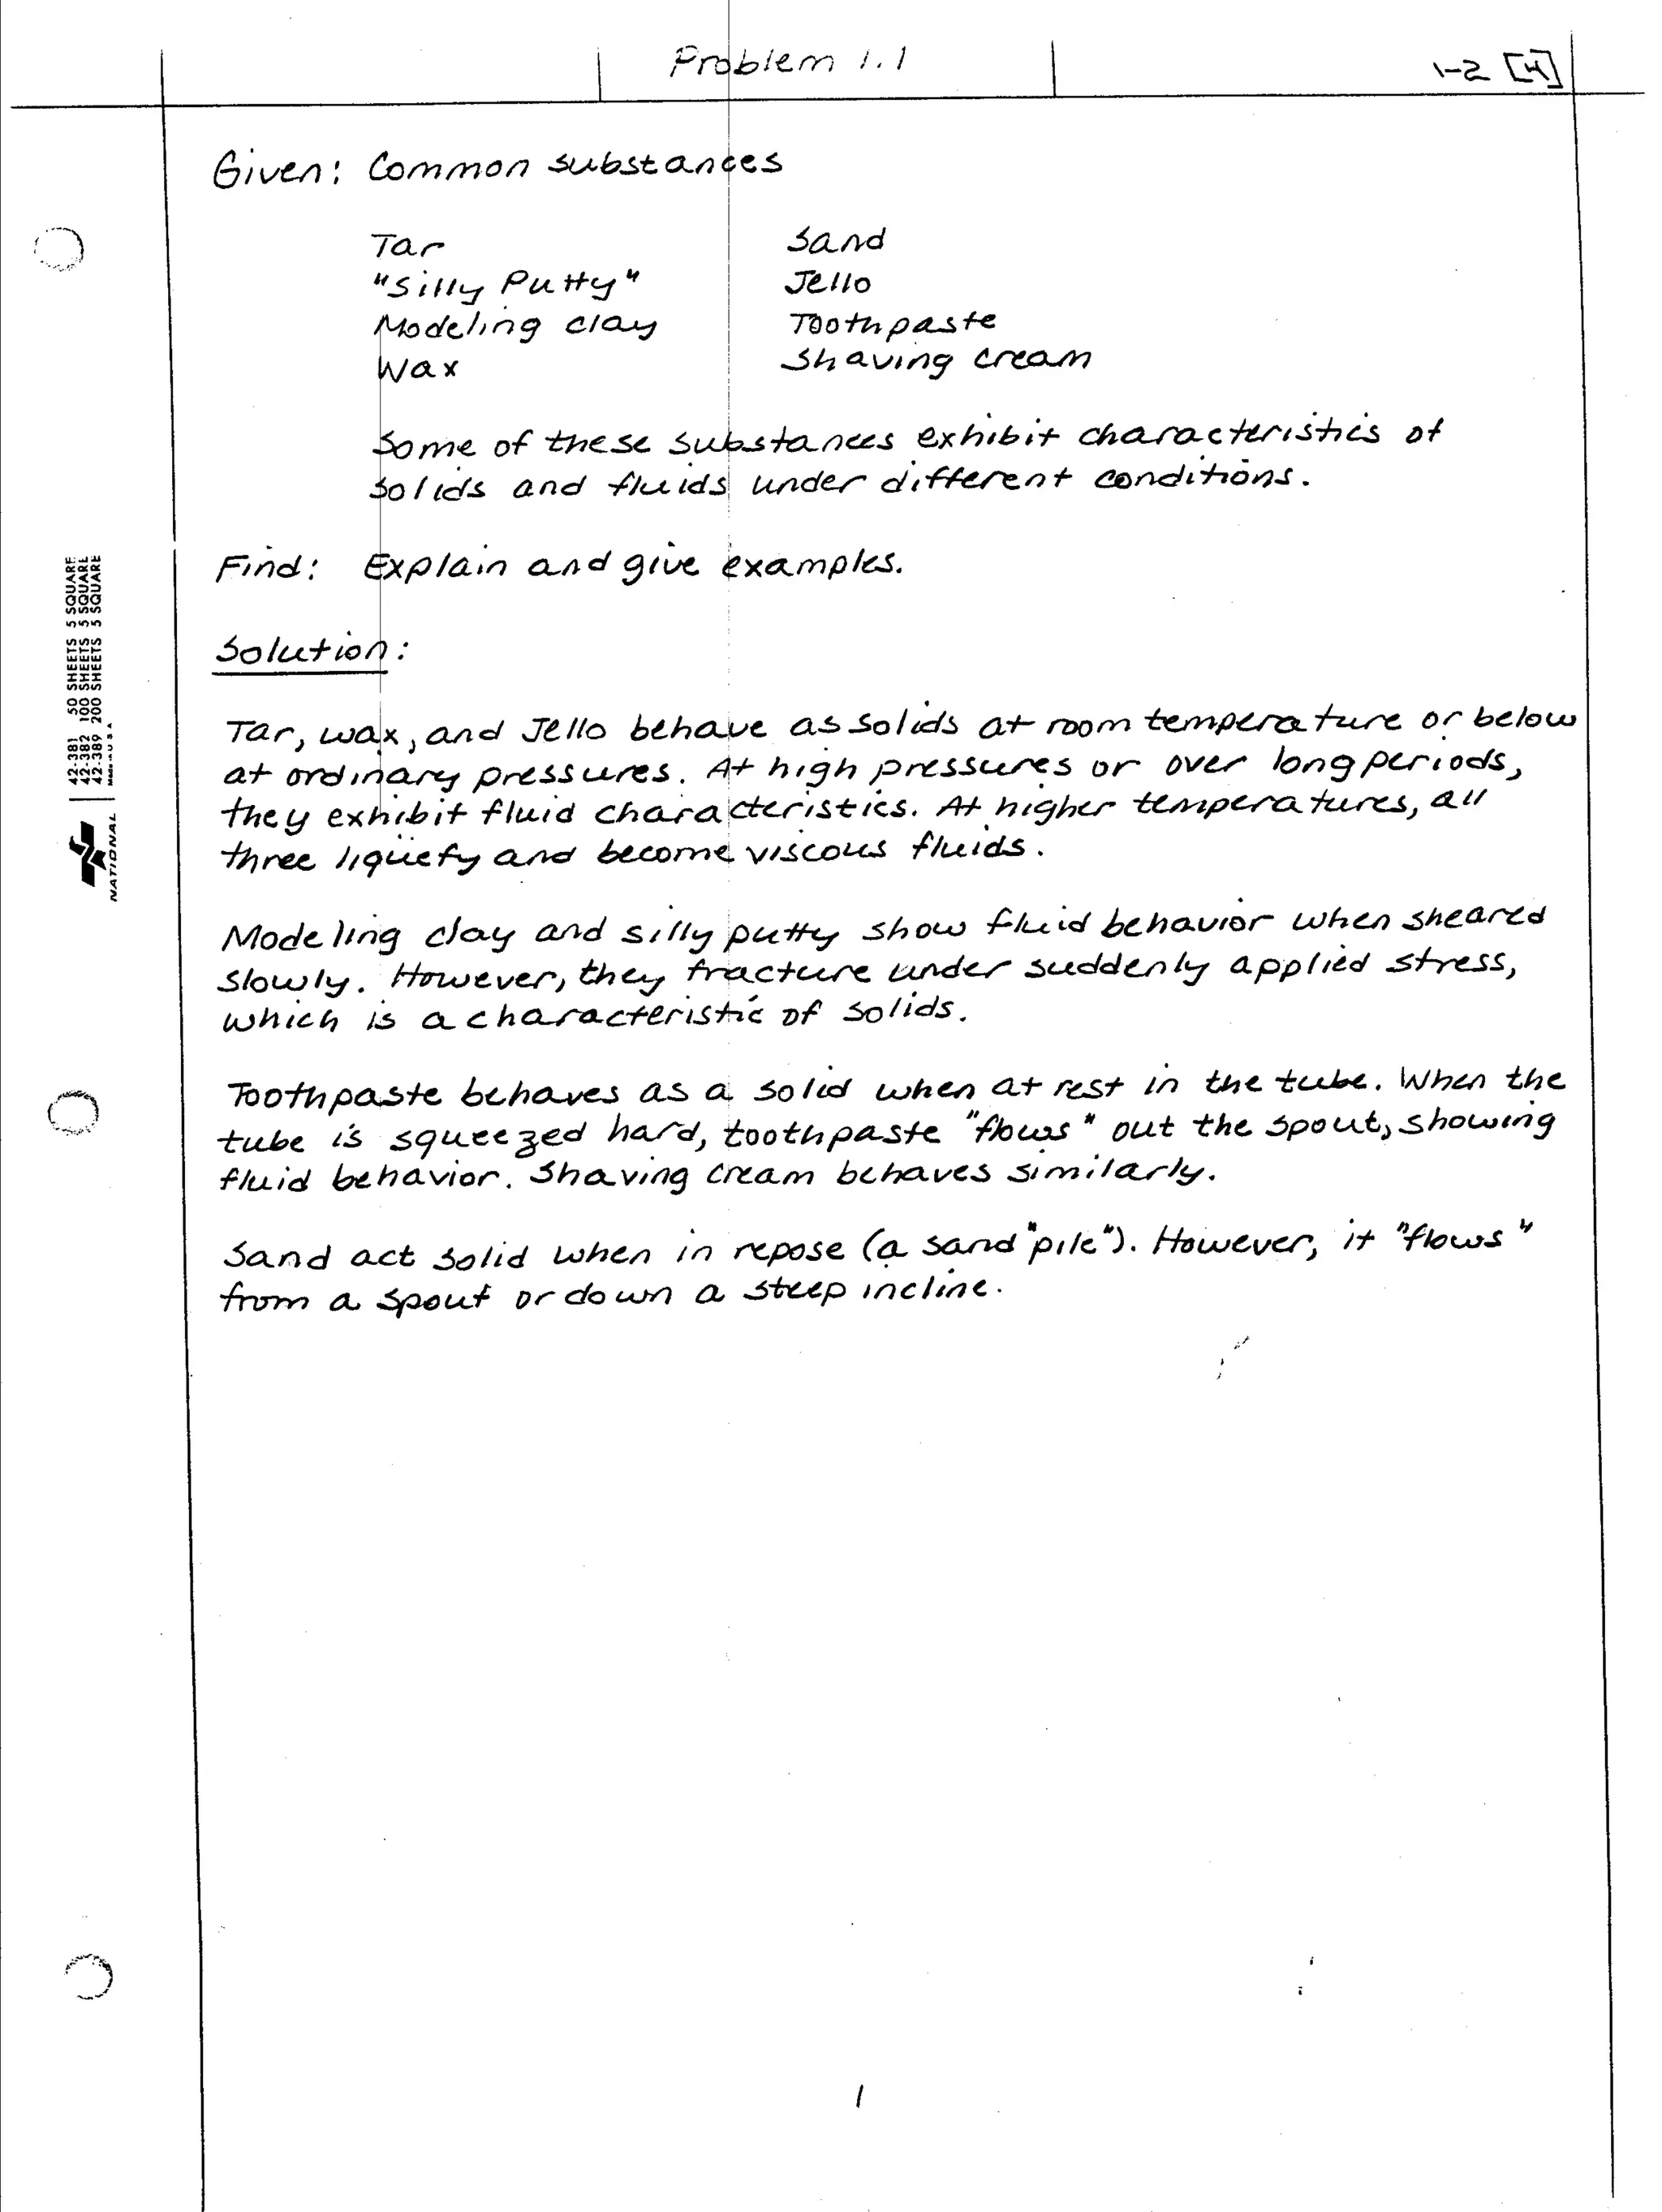 Problem 1.1
1-2 [4]
Given: Common substances
Tar Sand
"Silly Putty" Jello
Modeling clay Toothpaste
Wax Shaving cream
Some of these substances exhibit characteristics of
solids and fluids under different conditions.
Find: Explain and give examples.
Solution:
Tar, wax, and Jello behave as solids at room temperature or below
at ordinary pressures. At high pressures or over long periods,
they exhibit fluid characteristics. At higher temperatures, all
three liquefy and become viscous fluids.
Modeling clay and silly putty show fluid behavior when sheared
slowly. However, they fracture under suddenly applied stress,
which is a characteristic of solids.
Toothpaste behaves as a solid when at rest in the tube. When the
tube is squeezed hard, toothpaste "flows" out the spout, showing
fluid behavior. Shaving cream behaves similarly.
Sand act solid when in repose (a sand "pile"). However, it "flows"
from a spout or down a steep incline.
42-381 50 SHEETS 5 SQUARE
42-382 100 SHEETS 5 SQUARE
42-389 200 SHEETS 5 SQUARE
MADE IN U S A
NATIONAL
1